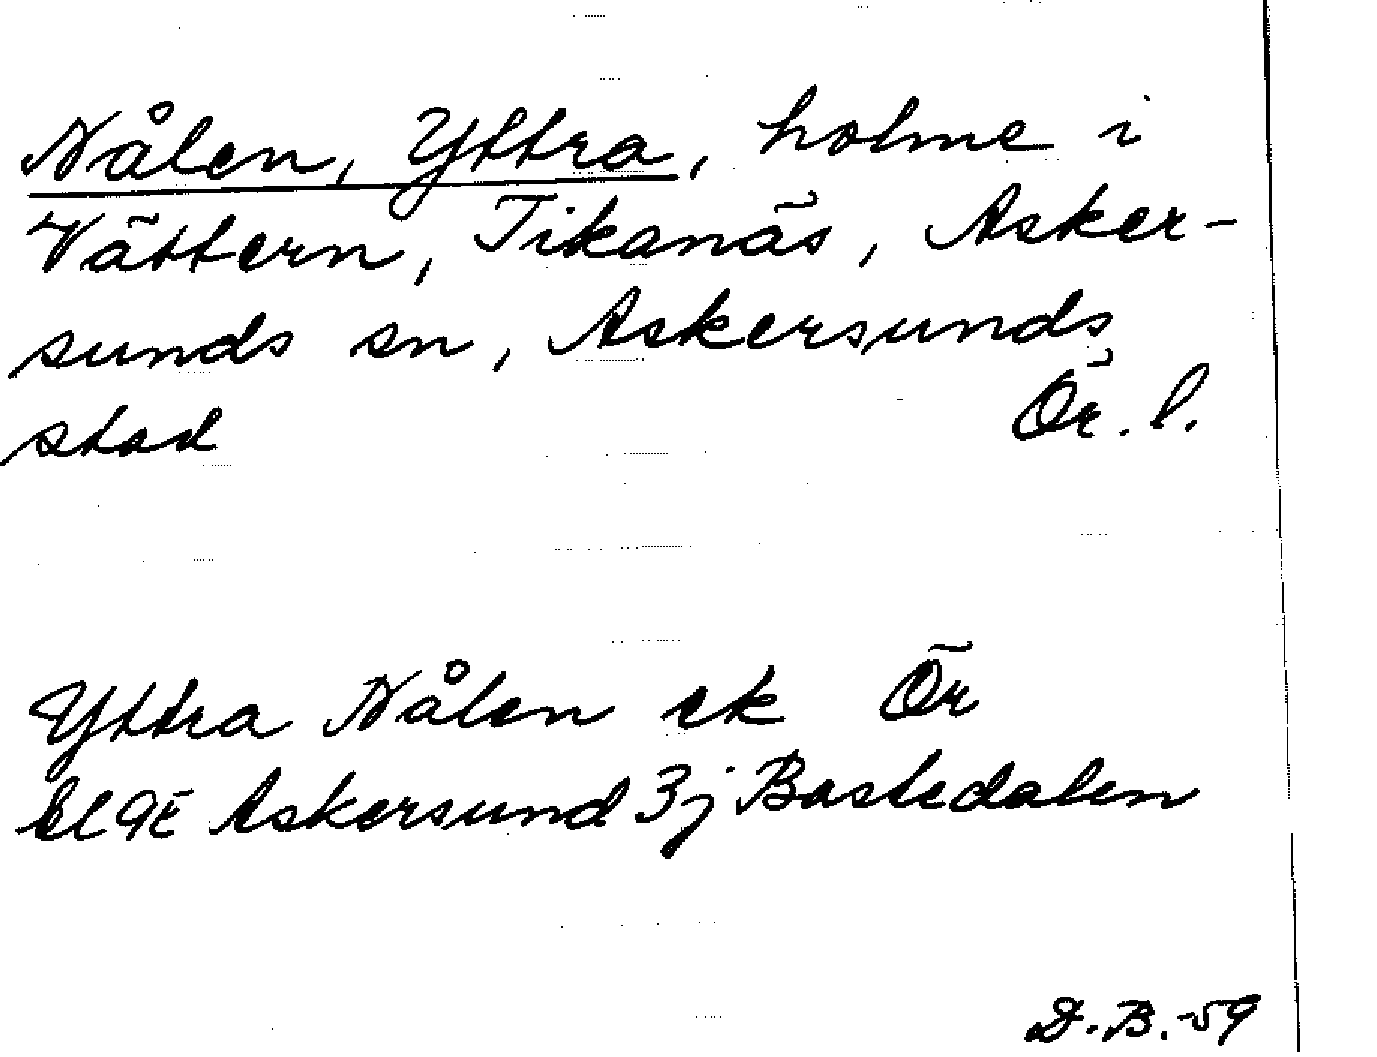 Nålen, Yttra, holme i
Vättern, Tikanäs, Asker-
sunds sn, Askersunds
stad Ör. l.
Yttra Nålen ek Ör
bl 9E Askersund 3j Bastedalen
D.B.-59